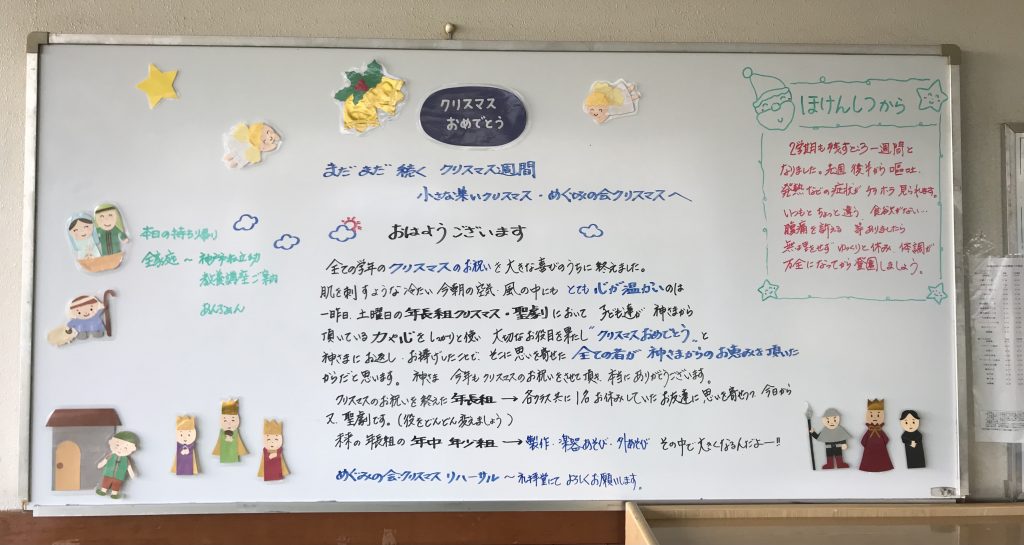 クリスマス
おめでとう
まだまだ続く クリスマス週間
小さな集いクリスマス・めぐみの会クリスマスへ
おはようございます
全ての学年のクリスマスのお祝いを大きな喜びのうちに終えました。
肌を刺すような冷たい今朝の空気・風の中にも とても心が温かいのは
一昨日、土曜日の年長組クリスマス・聖劇において 子ども達が 神さまから
頂いている力や心をしっかりと使い 大切なお役目を果たし"クリスマスおめでとう"と
神さまにお返し・お捧げしたことで、そこに思いを寄せた 全ての者が 神さまからのお恵みを頂いた
からだと思います。 神さま 今年もクリスマスのお祝いをさせて頂き、本当にありがとうございます。
クリスマスのお祝いを終えた 年長組 → 各クラス共に1名お休みしていたお友達に思いを寄せつつ 今日から
又、聖劇です。(役をどんどん変えましょう)
未来の年長組の年中 年少組 → 製作・楽器あそび・外あそび その中で大きくなるんだよー!!
めぐみの会クリスマス リハーサル 〜 礼拝堂にて よろしくお願いします。
本日の持ち帰り
全家庭〜
教養講座ご案内
ほけんしつから
2学期も残すところ一週間と
なりました。先週後半から嘔吐、
発熱などの症状が チラホラ見られます。
いつもとちょっと違う 食欲がない…
腹痛を訴える 等ありましたら
無理をせず ゆっくりと休み 体調が
万全になってから登園しましょう。